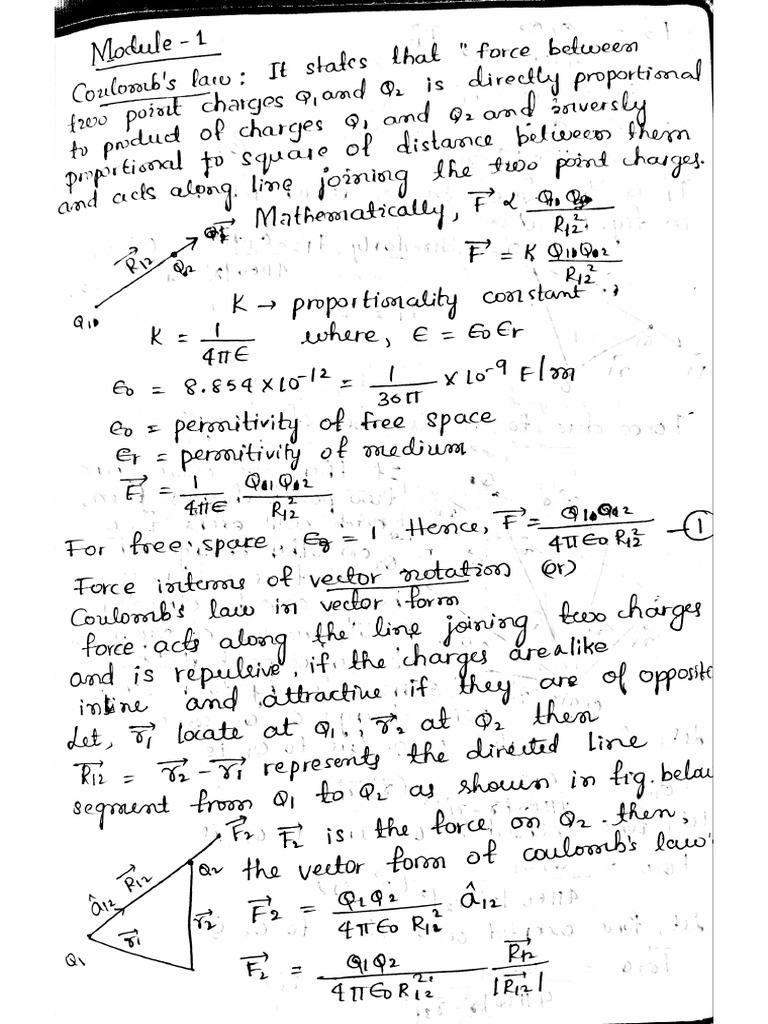 Module-1
Coulomb's law: It states that "force between
two point charges Q1 and Q2 is directly proportional
to product of charges Q1 and Q2 and inversly
proportional to square of distance between them
and acts along line joining the two point charges.
Mathematically, F⃗ ∝ Q1 Q2 / R12²
R⃗12 Q2 F⃗ Q1
F⃗ = K Q1 Q2 / R12²
K → proportionality constant
K = 1 / 4πϵ where, ϵ = ϵ0 ϵr
ϵ0 = 8.854 × 10^-12 = 1 / 36π × 10^-9 F/m
ϵ0 = permitivity of free space
ϵr = permitivity of medium
F⃗ = 1 / 4πϵ Q1 Q2 / R12²
For free space, ϵr = 1 Hence, F⃗ = Q1 Q2 / 4πϵ0 R12² — ①
Force interms of vector notation (or)
Coulomb's law in vector form
force acts along the line joining two charges
and is repulsive, if the charges are alike
and attractive if they are of opposite
Let, r⃗1 locate at Q1, r⃗2 at Q2 then
R⃗12 = r⃗2 - r⃗1 represents the directed line
segment from Q1 to Q2 as shown in fig. below
F⃗2 is the force on Q2. then,
the vector form of coulomb's law
F⃗2 Q2 R⃗12 â12 r⃗2 r⃗1 Q1
F⃗2 = Q1 Q2 / 4πϵ0 R12² â12
F⃗2 = Q1 Q2 / 4πϵ0 R12² R⃗12 / |R⃗12|